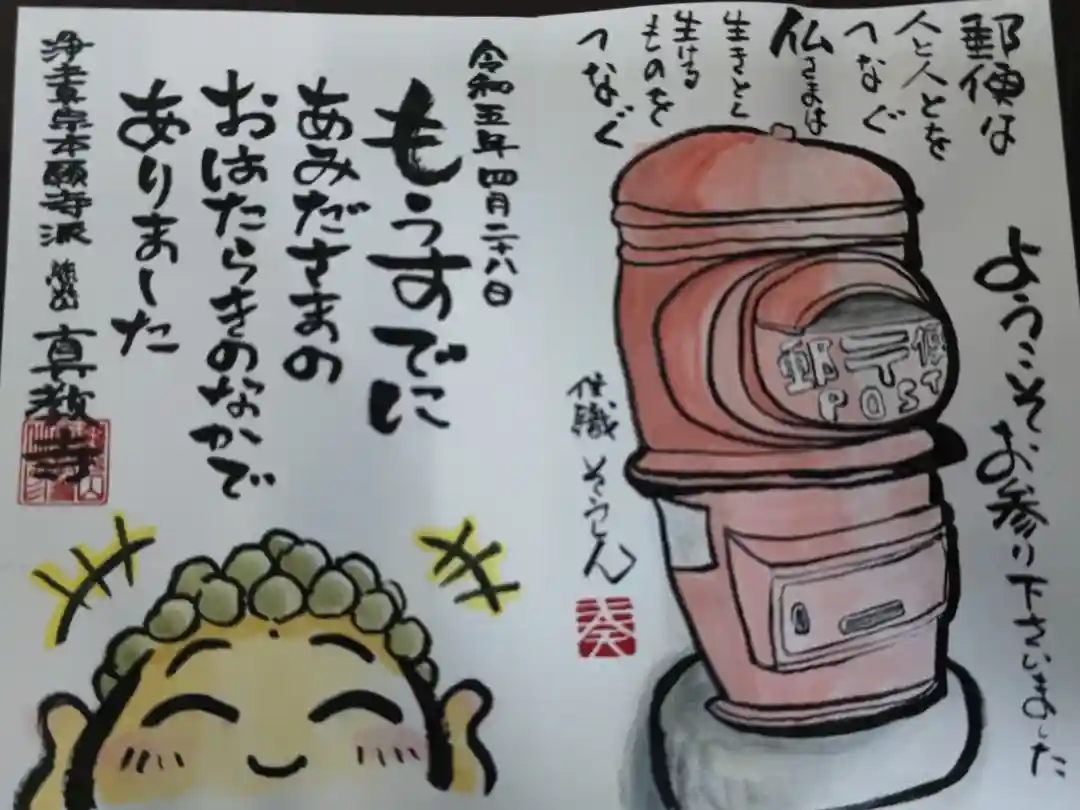 郵便は
人と人とを
つなぐ
仏さまは
生きとし
生ける
ものを
つなぐ
ようこそお参り下さいました
郵〒便
POST
住職 そうしん
奏
令和五年四月二十八日
もうすでに
あみださまの
おはたらきのなかで
ありました
浄土真宗本願寺派 真教寺